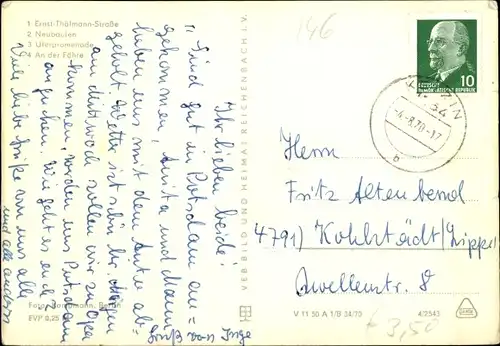 1 Ernst-Thälmann-Straße
2 Neubauten
3 Uferpromenade
4 An der Fähre
146
10
DEUTSCHE
DEMOKRATISCHE REPUBLIK
-4.-8.70-17
b
Ihr lieben beide!
Sind gut in Potsdam an=
gekommen, Anita und Mann
haben uns mit dem Auto ab=
geholt. Wetter ist schön hr. Morgen
am Mittwoch wollen wir zu Opa
kommen, werden uns Potsdam
ansehen. Wie geht es euch?
Viele liebe Grüße von uns alle
und alle andern
Gruß von Inge
VEB BILD UND HEIMAT REICHENBACH I. V.
Herrn
Fritz Altenbernd
4791) Kohlstädt/Lippe
Quellenstr. 8
Berlin
EVP 0,25
V 11 50 A 1/B 34/70
4/2543
€ 3,50